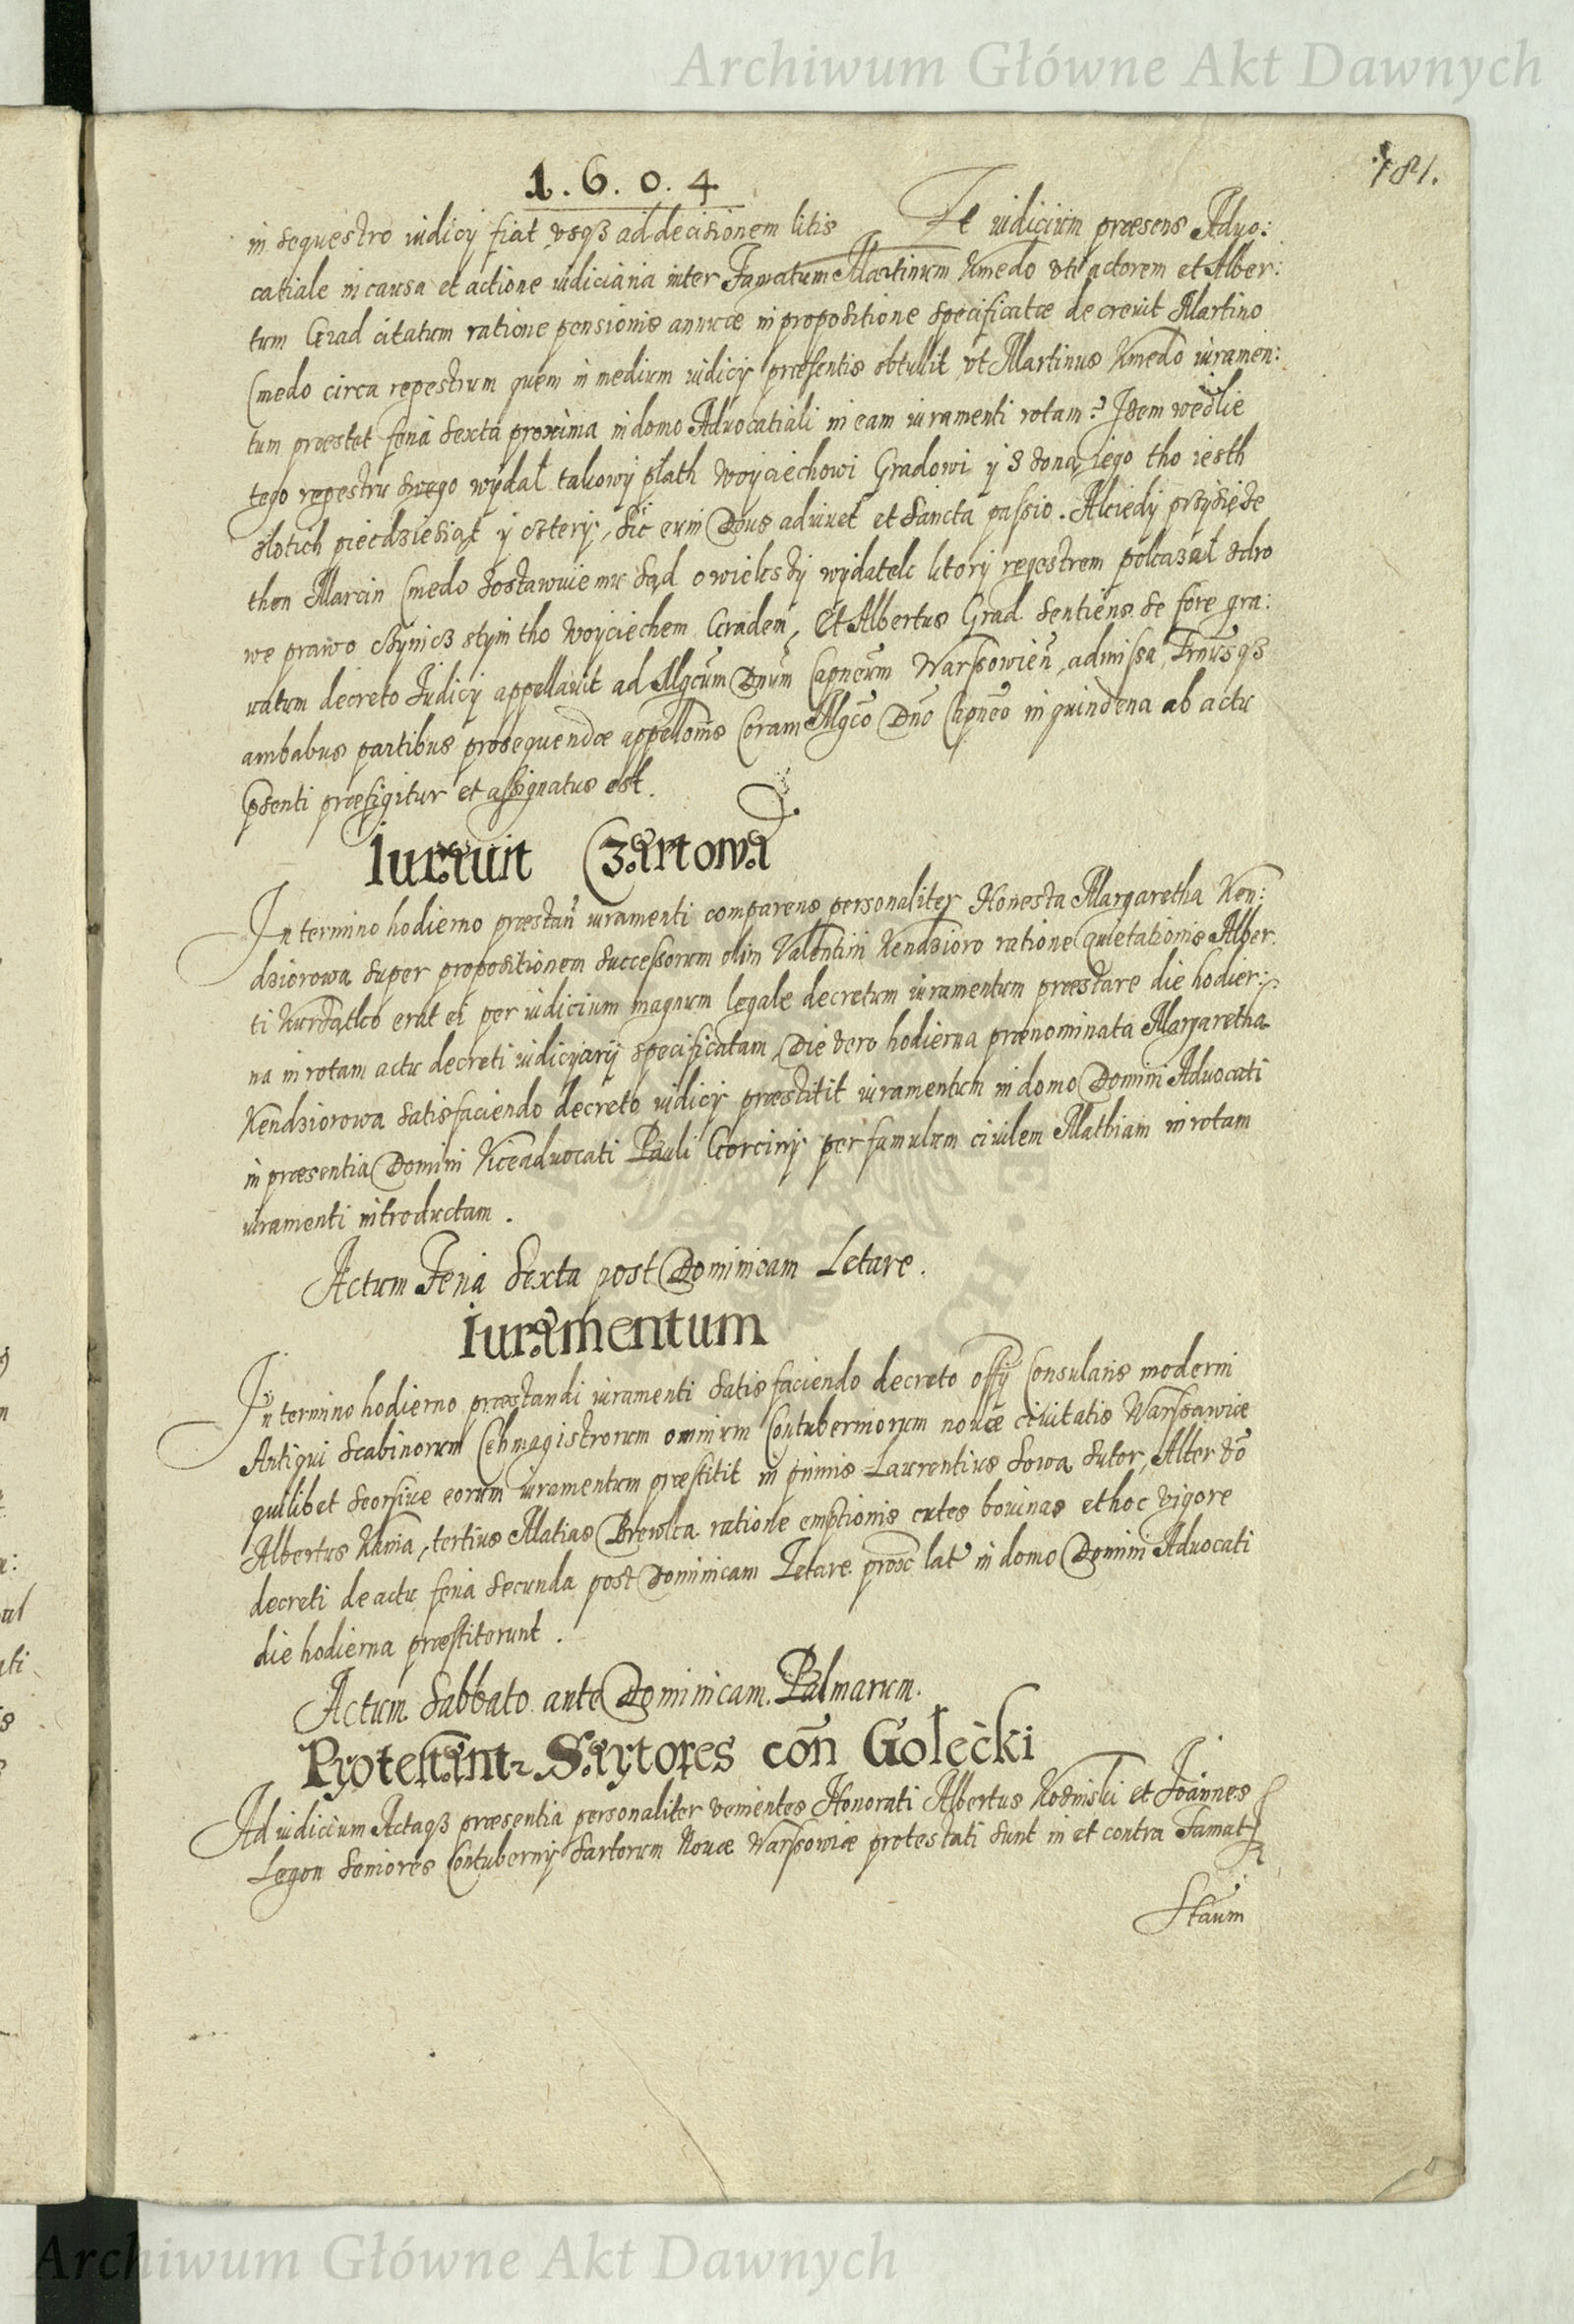 Archiwum Główne Akt Dawnych
181.
1. 6. 0. 4
in sequestro iudicij fiat vsq3 ad decisionem litis Et iudicium præsens Aduo:
catiale in causa et actione iudiciaria inter Famatum Martinum Kmedo vti actorem et Alber:
tum Grad citatum ratione pensionis annuæ in propositione specificatæ decreuit Martino
Cmedo circa regestrum quem in medium iudicij præsentis obtullit vt Martinus Kmedo iuramen:
tum præstet feria sexta proxima in domo Aduocatiali in eam iuramenti rotam? Isem wedlie
tego regestru swego wydał takowy płath Woyciechowi Gradowi y s żoną iego tho iesth
złotich piećdziesiąt y cztery, sic eum Deus adiuuet et sancta passio. A kiedy przysięże
then Marcin Cmedo zostawuie mu sąd o wieksży wydatek ktory regestrem pokazał zdro
we prawo czynicz stym tho Woyciechem Gradem, Et Albertus Grad sentiens se fore gra:
uatum decreto Iudicij appellauit ad Mgcum Dnum Capneum Warsowien, admissa Trnusq3
ambabus partibus prosequendæ appellonis Coram Mgco Dno Capneo in quindena ab actu
psenti præfigitur et assignatus est.
Iurauit Czartowa
In termino hodierno præstan iuramenti comparens personaliter Honesta Margaretha Ken:
dziorowa super propositionem successorum olim Valentini Kendzioro ratione quietationis Alber
ti Kurdątko erat ei per iudicium magnum legale decretum iuramentum præstare die hodier:
na in rotam actu decreti iudicijarij specificatam, Die vero hodierna prænominata Margaretha
Kendziorowa satisfaciendo decreto iudicij præstitit iuramentum in domo Domini Aduocati
in præsentia Domini Viceaduocati Pauli Gorcinij per famulum ciuilem Mathiam in rotam
iuramenti introductam.
Actum Feria Sexta post Dominicam Letare.
Iuramentum
In termino hodierno præstandi iuramenti satisfaciendo decreto offy Consularis moderni
Antiqui Scabinorum Cehmagistrorum omnium Contuberniorum nouæ ciuitatis Warsawiæ
quilibet seorsiue eorum iuramentum præstitit in primis Laurentius Sowa sutor, Alter vo
Albertus Kania, tertius Matias Brewka ratione emptionis cutes bouinas et hoc vigore
decreti de actu feria secunda post Dominicam Letare prouc lat in domo Domini Aduocati
die hodierna præstiterunt.
Actum Sabbato ante Dominicam Palmarum.
Protestant Sartores con Golecki
Ad iudicium Actaq3 præsentia personaliter venientes Honorati Albertus Kosinski et Ioannes
Legon seniores Contubernij Sartorum Nouæ Warsowiæ protestati sunt in et contra Famat
Staum
Archiwum Główne Akt Dawnych